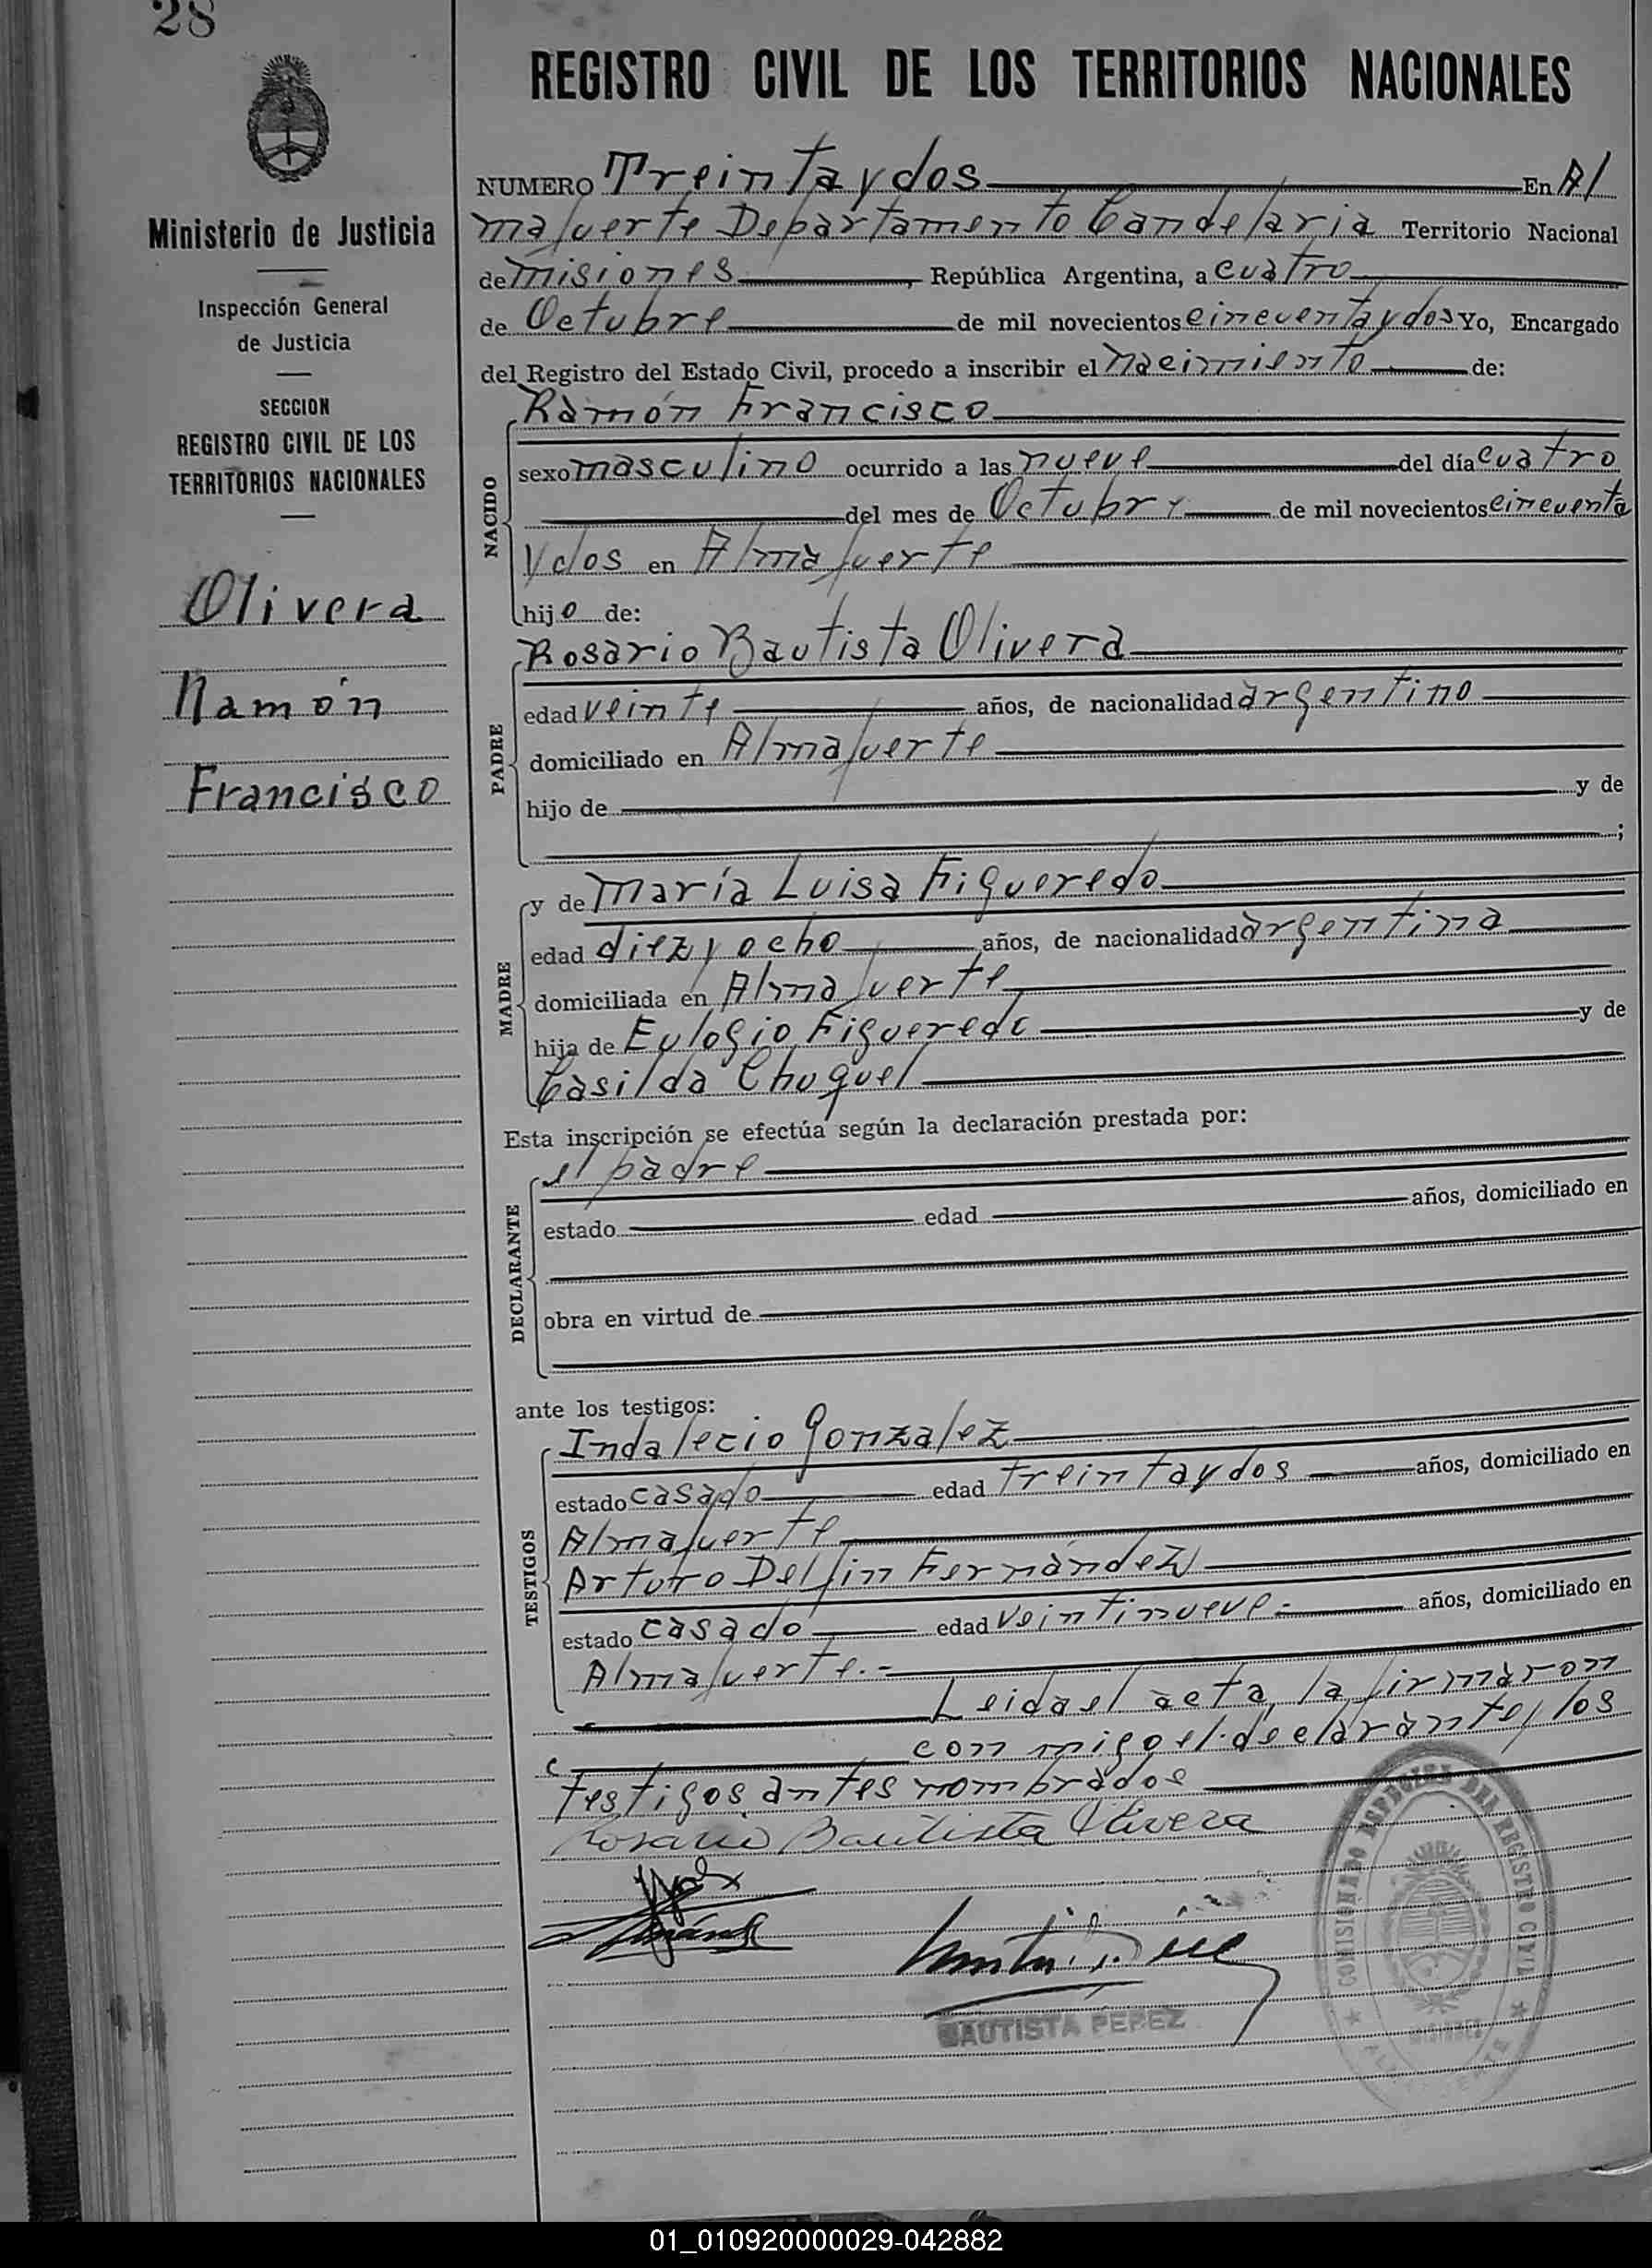 28
REGISTRO CIVIL DE LOS TERRITORIOS NACIONALES
Ministerio de Justicia
Inspección General
de Justicia
SECCION
REGISTRO CIVIL DE LOS
TERRITORIOS NACIONALES
Olivera
Ramón
Francisco
NUMERO Treinta y dos En Al
mafuerte Departamento Candelaria Territorio Nacional
de misiones, República Argentina, a cuatro
de Octubre de mil novecientos cincuenta y dos Yo, Encargado
del Registro del Estado Civil, procedo a inscribir el nacimiento de:
NACIDO
Ramón Francisco
sexo masculino ocurrido a las nueve del día cuatro
del mes de Octubre de mil novecientos cincuenta
y dos en Almafuerte
hijo de:
PADRE
Rosario Bautista Olivera
edad veinte años, de nacionalidad argentino
domiciliado en Almafuerte
hijo de y de
;
MADRE
y de maría Luisa Figueredo
edad diez y ocho años, de nacionalidad argentina
domiciliada en Almafuerte
hija de Eulogio Figueredo y de
Casilda Chuquel
Esta inscripción se efectúa según la declaración prestada por:
DECLARANTE
el padre
estado edad años, domiciliado en
obra en virtud de
ante los testigos:
TESTIGOS
Indalecio Gonzalez
estado casado edad treinta y dos años, domiciliado en
Almafuerte
Arturo Delfin Fernández
estado casado edad veintinueve.- años, domiciliado en
Almafuerte.-
Leida el acta, la firmaron
con migo el declarante y los
testigos antes nombrados
Rosario Bautista Olivera
BAUTISTA PÉREZ
COMISIONADO ESPECIAL DEL REGISTRO CIVIL
MISIONES
01_010920000029-042882